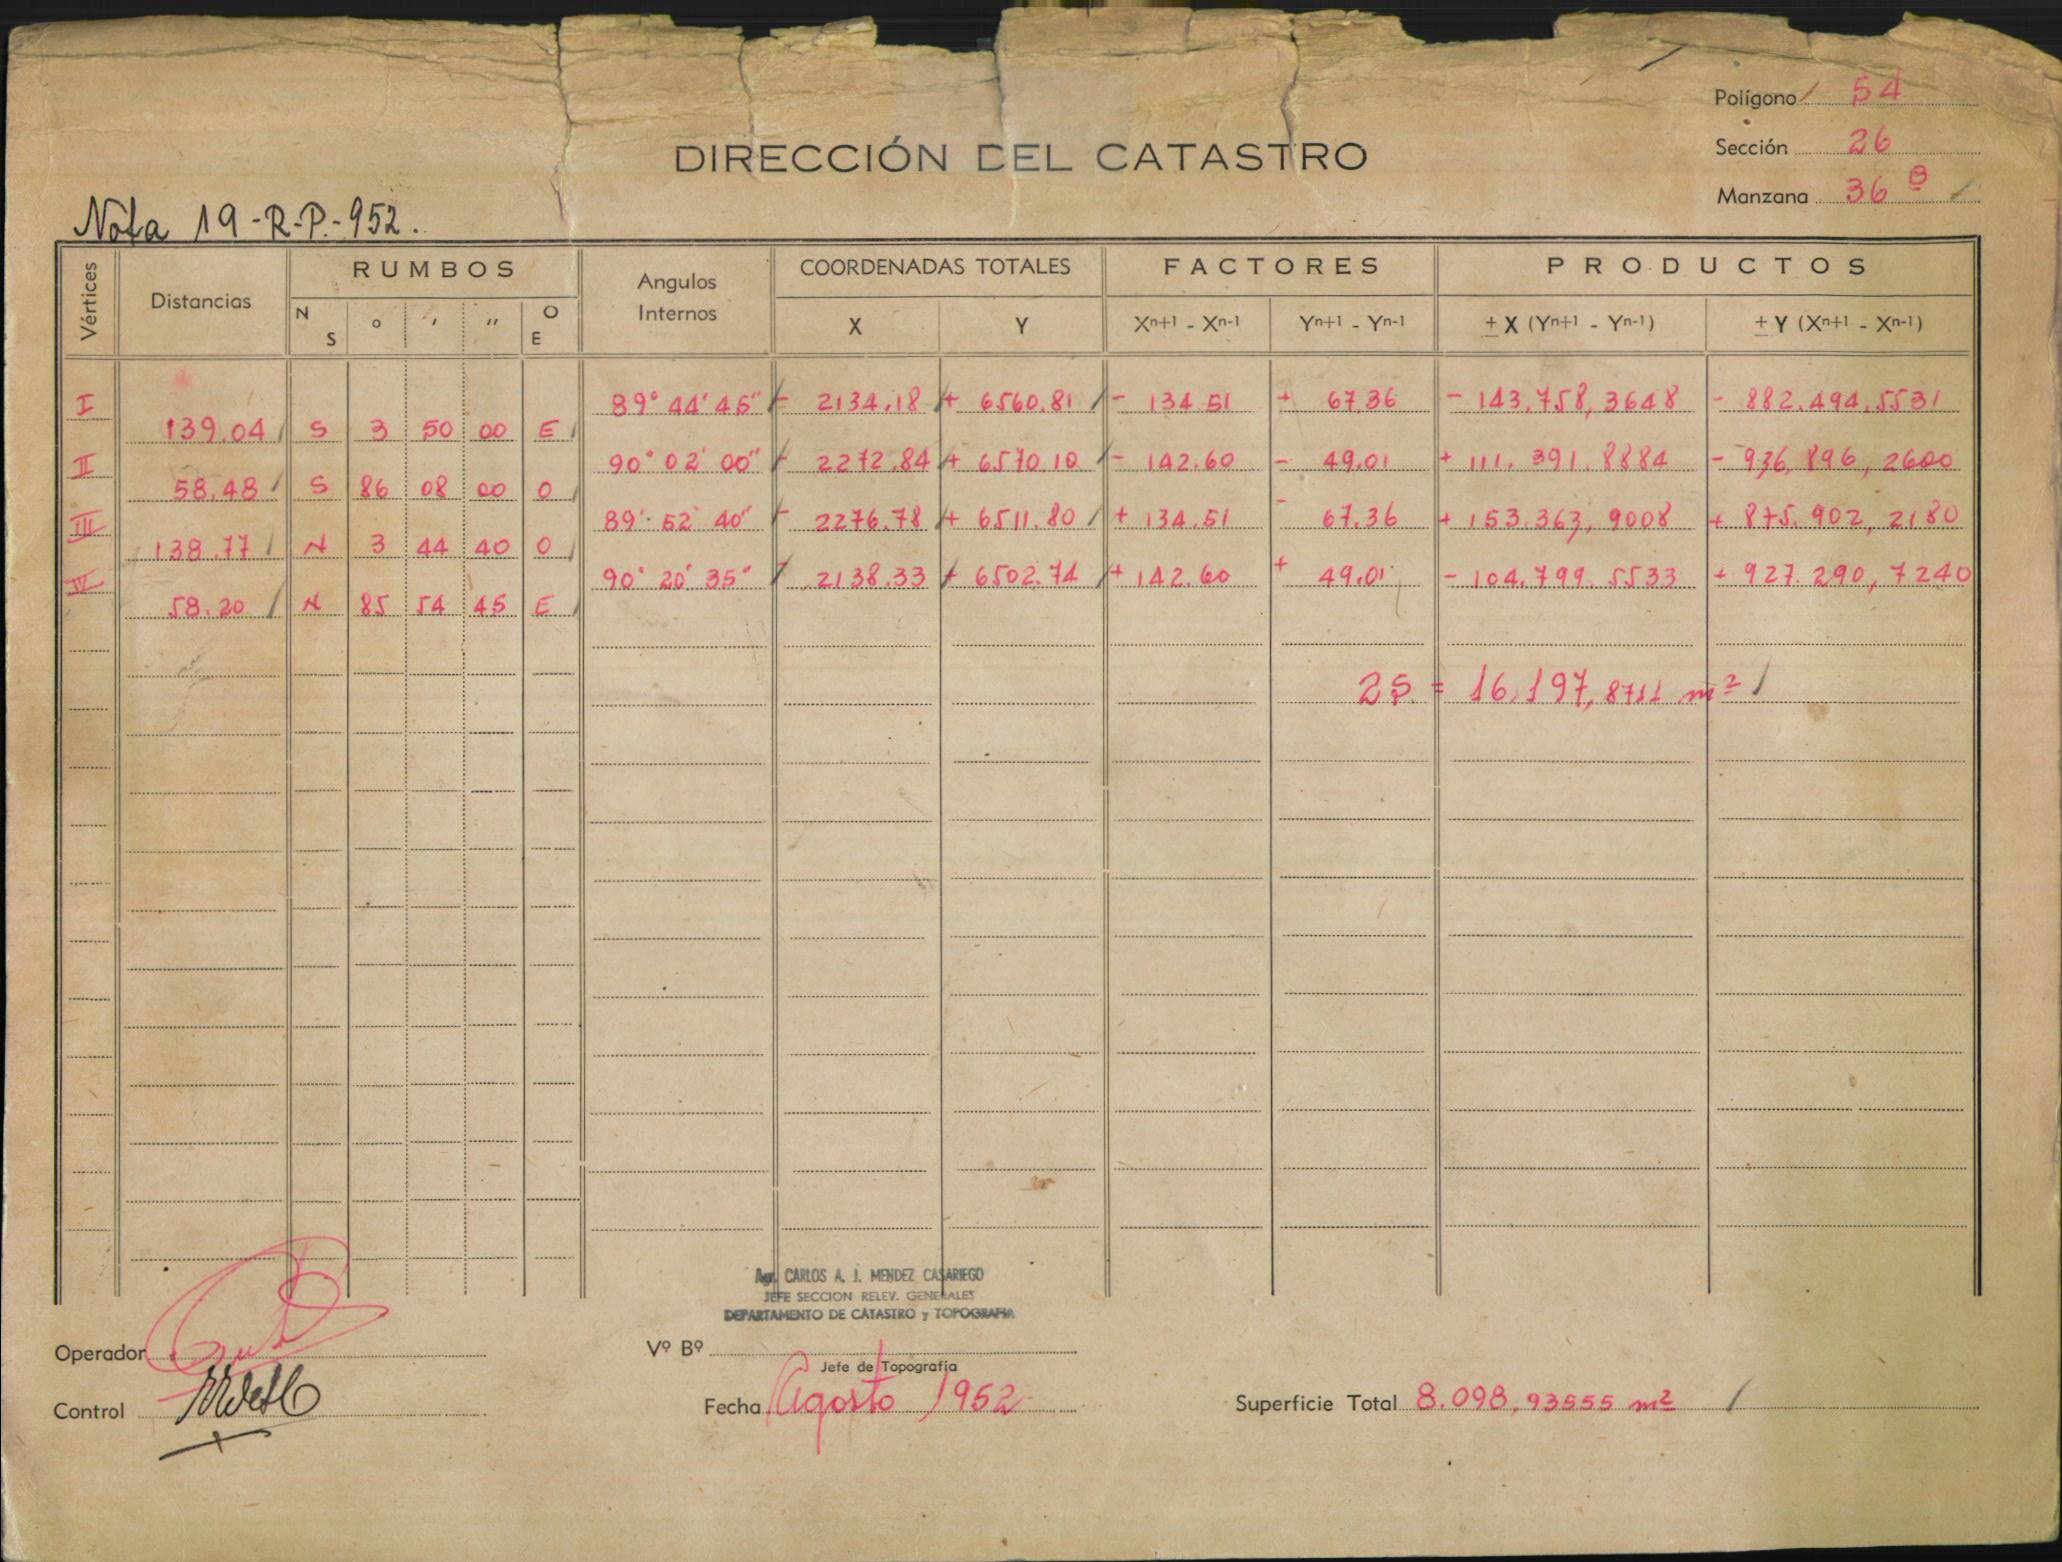 Polígono 54
DIRECCIÓN DEL CATASTRO
Sección 26
Manzana 36 B
Nota 19-R-P.-952.
Vértices Distancias RUMBOS Angulos Internos COORDENADAS TOTALES FACTORES PRODUCTOS
N S ° ' " O E X Y Xn+1 - Xn-1 Yn+1 - Yn-1 ± X (Yn+1 - Yn-1) ± Y (Xn+1 - Xn-1)
I 89° 44' 45" - 2134.18 + 6560.81 - 134.51 + 67.36 - 143.758,3648 - 882.494,5531
139.04 S 3 50 00 E
II 90° 02' 00" - 2272.84 + 6570.10 - 142.60 - 49.01 + 111.391.8884 - 936,896,2600
58.48 S 86 08 00 O
III 89° 52' 40" - 2276.78 + 6511.80 + 134.51 - 67.36 + 153.363,9008 + 875.902,2180
138.77 N 3 44 40 O
IV 90° 20' 35" - 2138.33 + 6502.74 + 142.60 + 49.01 - 104.799.5533 + 927.290,7240
58.20 N 85 54 45 E
2S = 16.197,8711 m²
Agr. CARLOS A. J. MENDEZ CASARIEGO
JEFE SECCION RELEV. GENERALES
DEPARTAMENTO DE CATASTRO y TOPOGRAFIA
Operador
Vº Bº
Jefe de Topografía
Control
Fecha Agosto 1952
Superficie Total 8.098,93555 m²